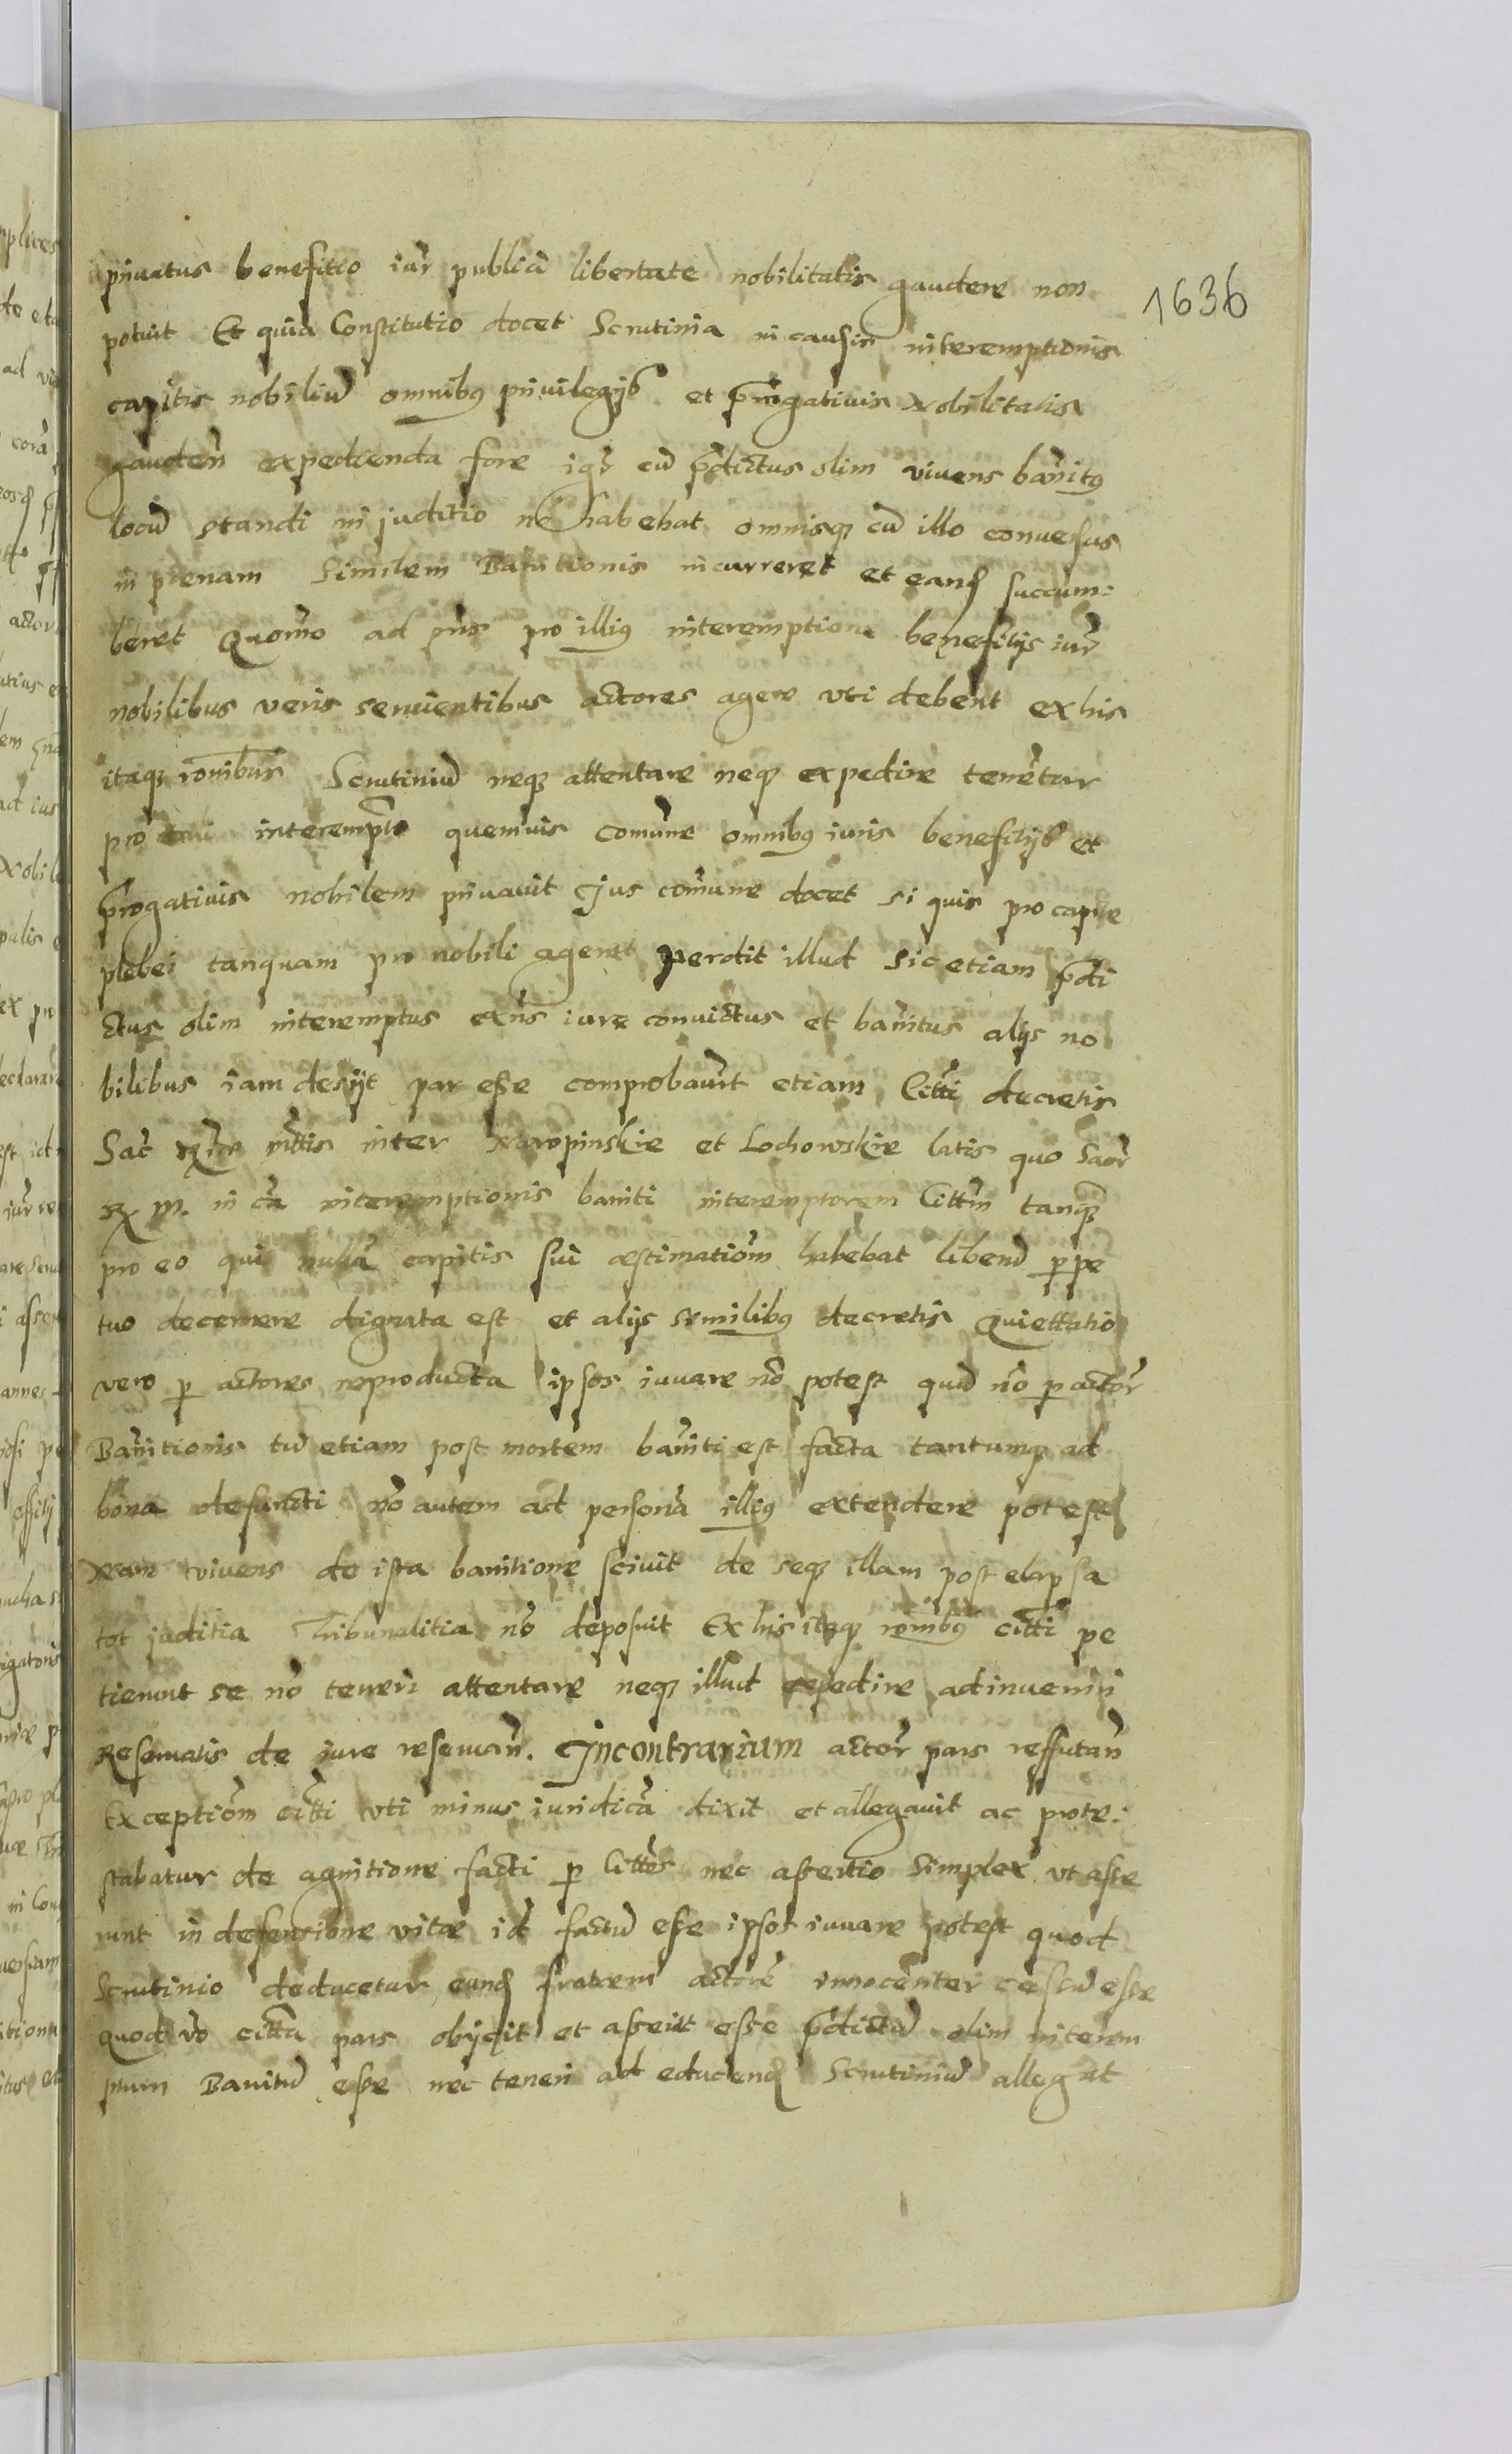 priuatus benefitio iur̃ publicã libertate nobilitatis gaudere non
1636
potuit Et quia Constitutio docet Scrutinia in causis interemptionis
capitis nobiliũ omnibꝰ priuilegijs et p̃rogatiuis Nobilitatis
gauden̄ expedienda fore igr̃ cũ p̃dictus olim viuens banitꝰ
locũ standi in juditio nõ habebat omnisq; cũ illo conuersus
in poenam similem Banitionis incurreret et eand succum:
beret Quomõ ad pñs pro illiꝰ interemptione benefitijs iur̃
nobilibus veris seruientibus actores agere vti debent ex his
itaq; rõnibus Scrutiniũ neq; attentare neq; expedire tenẽtur
pro tali interempto quemuis comune omnibꝰ iuris benefitijs et
p̃rogatiuis nobilem priuauit Ius comune docet si quis pro capite
plebei tanquam pro nobili ageret perdit illud sic etiam p̃di
ctus olim interemptus exñs iure conuictus et banitus alijs no
bilibus iam desijt par esse comprobauit etiam Citti decretis
Sac̃ Rgiæ mttis inter Karopinskie et Lochowskie latis quo Sacr̃
R M. in cã interemptionis baniti interemptorem Cittm̃ tanq̃
pro eo qui nullã capitis sui æstimatiom̃ habebat liberũ perpe
tuo decernere dignata est et alijs similibꝰ decretis Quiettatio
vero p actores reproducta ipsos iuuare nõ potest quũ nõ p actor̃
Banitionis tũ etiam post mortem baniti est facta tantumq; ad
bona defuncti nõ autem ad personã illiꝰ extendere potest
Nam viuens de ista banitione sciuit de seq; illam post elapsa
tot juditia Tribunalitia nõ deposuit Ex his itaq; rõnibꝰ citti pe
tierunt se nõ teneri attentare neq; illud expedire adinueniri
Reseruatis de iure reseruan̄. Incontrarium actor̃ pars reffutan̄
Exceptiom̃ citti vti minus iuridicã dixit et allegauit ac prote:
stabatur de agnitione facti p Cittos nec assertio simplex vt asse
runt in defensione vitæ id factũ esse ipsos iuuare potest quod
Scrutinio deducetur eund fratrem actorẽ innocenter cesũ esse
quod vo citta pars obijcit et asserit esse p̃dictũ olim interem
ptum Banitũ esse nec teneri ad educend Scrutiniũ allegat